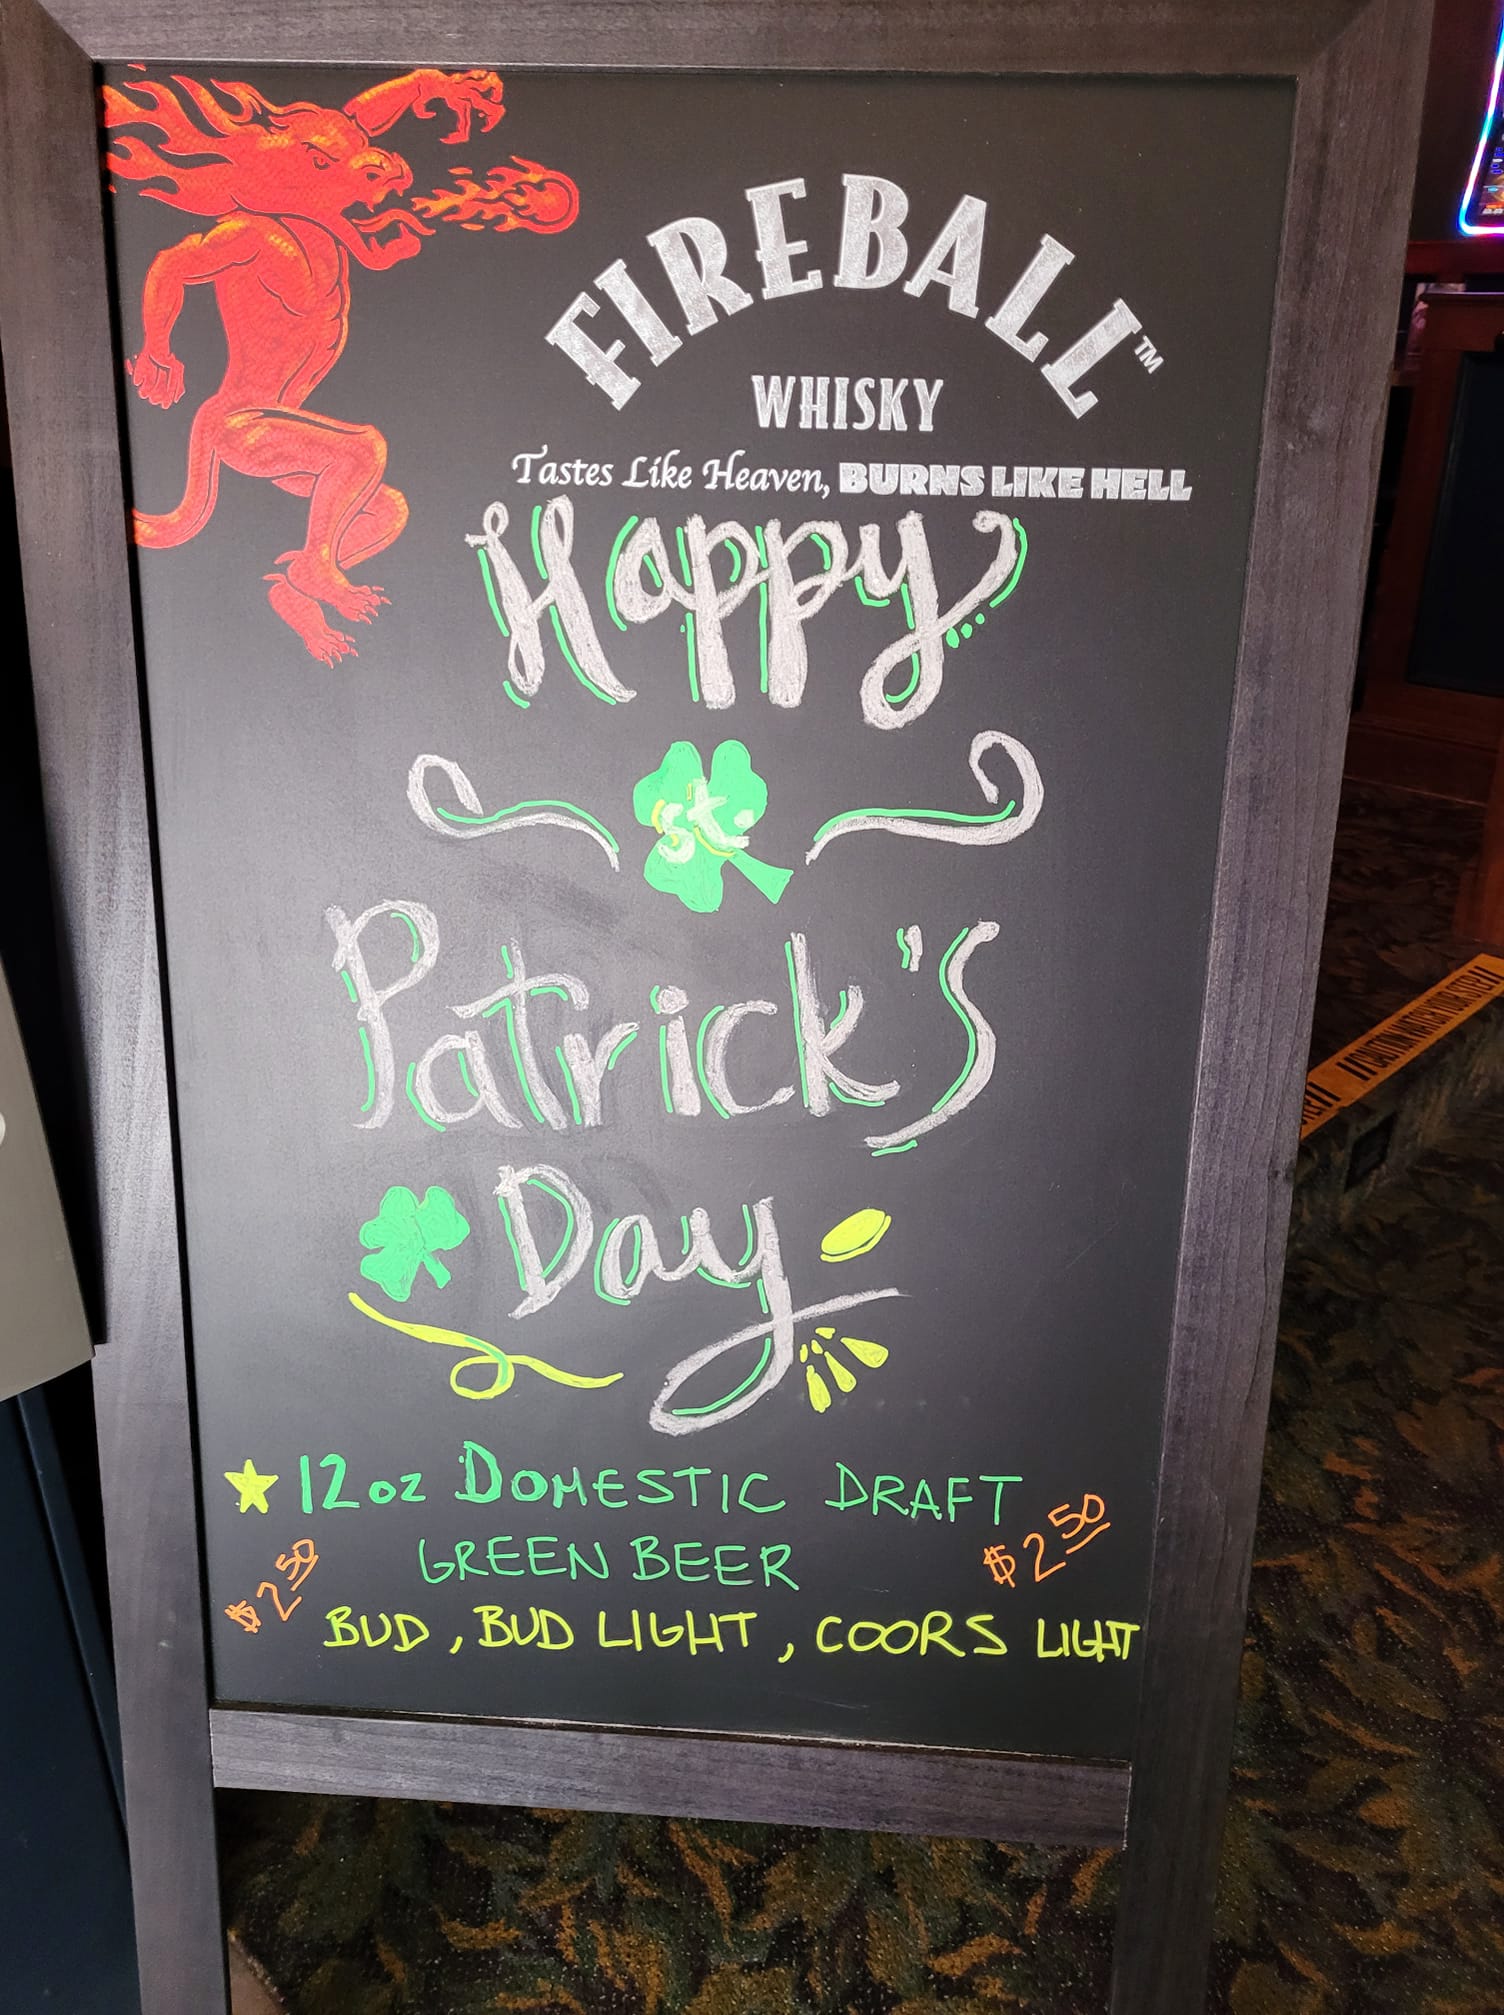 FIREBALL™
WHISKY
Tastes Like Heaven, BURNS LIKE HELL
Happy
st.
Patrick's
Day
12oz DOMESTIC DRAFT
GREEN BEER
$2.50
$2.50
BUD, BUD LIGHT, COORS LIGHT
CAUTION WATCH YOUR STEP